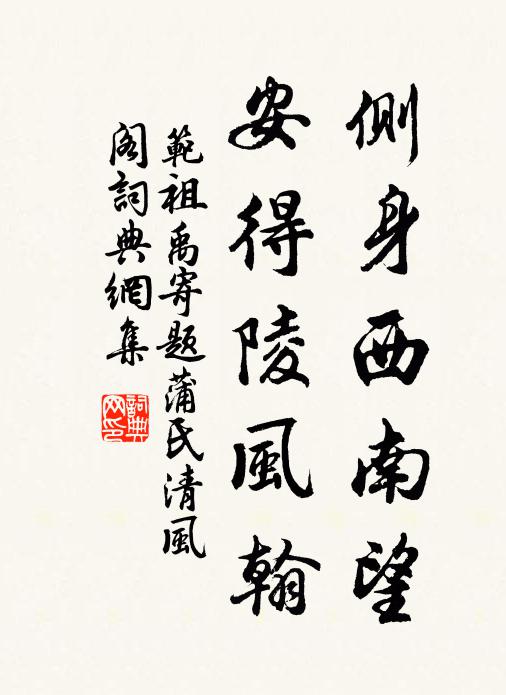 側身西南望
安得陵風翰
範祖禹寄题蒲氏清風
閣詞典網集
詞典
网印